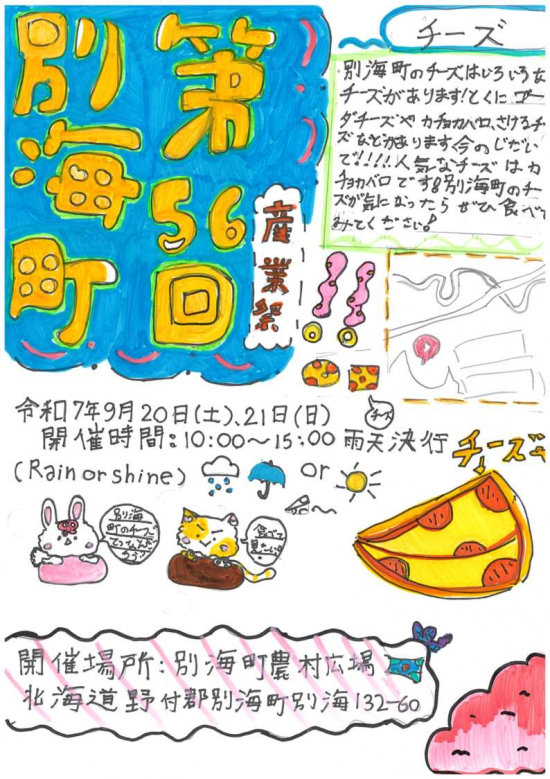 第56回
別海町
産業祭
チーズ
別海町のチーズはいろいろな
チーズがあります!とくにゴー
ダチーズやカチョカバロ、さけるチー
ズなどがあります今のじだい
で!!!!人気なチーズはカ
チョカバロです♪別海町のチー
ズが気になったらぜひ食べて
みてください!
令和7年9月20日(土)、21日(日)
チーズ
開催時間:10:00〜15:00 雨天決行
(Rain or shine)
or
チーズ
別海
町のチーズ
食べて
見たい!
開催場所:別海町農村広場
北海道野付郡別海町別海132-60